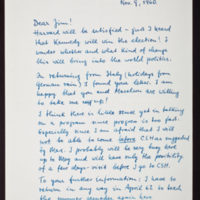 Nov. 9, 1960.
Dear Jim!
Harvard will be satisfied - just I heard
that Kennedy will win the election! I
wonder whether and what kind of change
this will bring into the world politics.
In returning from Italy (holidays from
german rain) I found your letter. I am
happy that you and Macelwee are willing
to take me up!
I think there is little sense yet in talking
on a program since progress is too fast.
Especially since I am afraid that I will
not be able to come before CSH as suggested
by Max. I probably will be very busy here
up to May and will have only the possibility
of a few days - visit before I go to CSH.
To your further information: I have to
return in any way in April 62 to
the summer semester again here